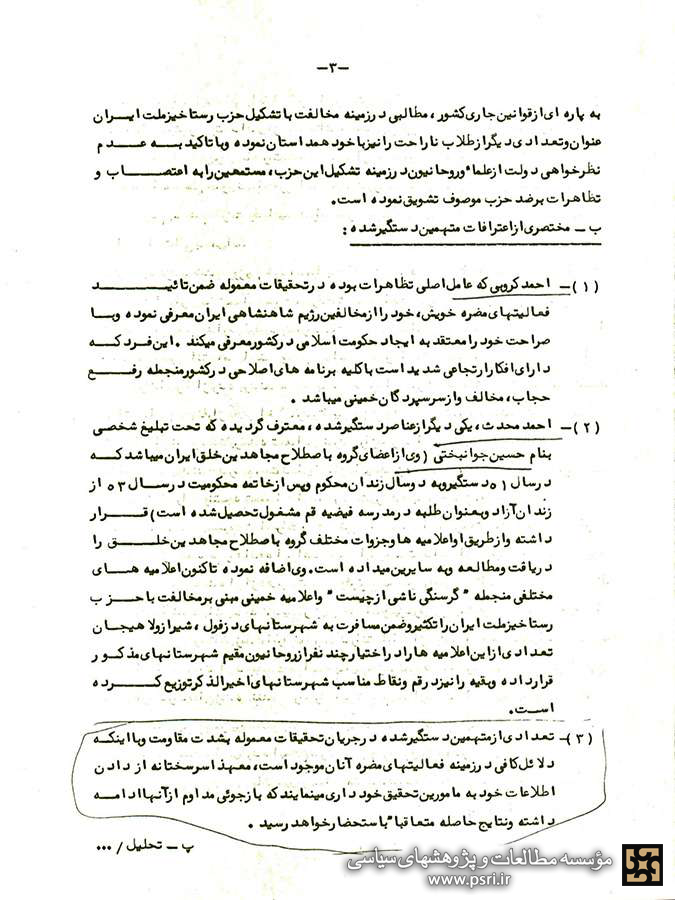 -۳-
به پاره ای از قوانین جاری کشور، مطالبی در زمینه مخالفت با تشکیل حزب رستاخیز ملت ایران
عنوان و تعدادی دیگر از طلاب ناراحت را نیز با خود همداستان نموده و با تاکید به عدم
نظرخواهی دولت از علماء و روحانیون در زمینه تشکیل این حزب، مستمعین را به اعتصاب و
تظاهرات بر ضد حزب موصوف تشویق نموده است.
ب - مختصری از اعترافات متهمین دستگیر شده :
(۱)- احمد کروبی که عامل اصلی تظاهرات بوده در تحقیقات معموله ضمن تائید
فعالیتهای مضره خویش، خود را از مخالفین رژیم شاهنشاهی ایران معرفی نموده و با
صراحت خود را معتقد به ایجاد حکومت اسلامی در کشور معرفی میکند . این فرد که
دارای افکار ارتجاعی شدید است با کلیه برنامه های اصلاحی در کشور منجمله رفع
حجاب، مخالف و از سرسپردگان خمینی میباشد .
(۲)- احمد محدث، یکی دیگر از عناصر دستگیر شده، معترف گردیده که تحت تبلیغ شخصی
بنام حسین جوانبختی (وی از اعضای گروه باصطلاح مجاهدین خلق ایران میباشد که
در سال ۵۱ دستگیر و به دو سال زندان محکوم و پس از خاتمه محکومیت در سال ۵۳ از
زندان آزاد و بعنوان طلبه در مدرسه فیضیه قم مشغول تحصیل شده است) قرار
داشته و از طریق او اعلامیه ها و جزوات مختلف گروه باصطلاح مجاهدین خلق را
دریافت و مطالعه و به سایرین میداده است. وی اضافه نموده تاکنون اعلامیه های
مختلفی منجمله "گرسنگی ناشی از چیست" و اعلامیه خمینی مبنی بر مخالفت با حزب
رستاخیز ملت ایران را تکثیر و ضمن مسافرت به شهرستانهای دزفول، شیراز و لاهیجان
تعدادی از این اعلامیه ها را در اختیار چند نفر از روحانیون مقیم شهرستانهای مذکور
قرار داده و بقیه را نیز در قم و نقاط مناسب شهرستانهای اخیرالذکر توزیع کرده
است.
(۳)- تعدادی از متهمین دستگیر شده در جریان تحقیقات معموله بشدت مقاومت و با اینکه
دلائل کافی در زمینه فعالیتهای مضره آنان موجود است، معهذا سرسختانه از دادن
اطلاعات خود به مامورین تحقیق خودداری مینمایند که بازجوئی مداوم از آنها ادامه
داشته و نتایج حاصله متعاقبا" باستحضار خواهد رسید .
پ - تحلیل / ...
مؤسسه مطالعات و پژوهشهای سیاسی
www.psri.ir